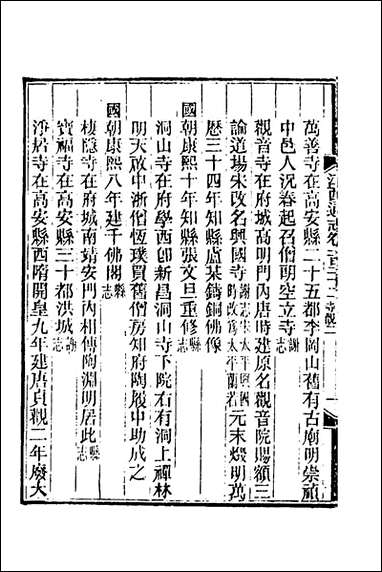 萬善寺在高安縣二十五都李岡山舊有古廟明崇禎
中邑人況春起召僧朗空立寺謝志
觀音寺在府城高明門內唐時建原名觀音院賜額三
論道場宋改名興國寺謝志宋太平興國時改為太平蘭若元末燬明萬
歷三十四年知縣盧某鑄銅佛像
國朝康熙十年知縣張文旦重修縣志
洞山寺在府學西即新昌洞山寺下院右有洞上禪林
明天啟中浙僧恆璞買舊僧房知府陶履中助成之
國朝康熙八年建千佛閣縣志
棲隱寺在府城南靖安門內相傳陶淵明居此縣志
寶福寺在高安縣三十都洪城謝志
淨居寺在高安縣西隋開皇九年建唐貞觀二年廢大
江西通志卷一百二十二 寺觀二